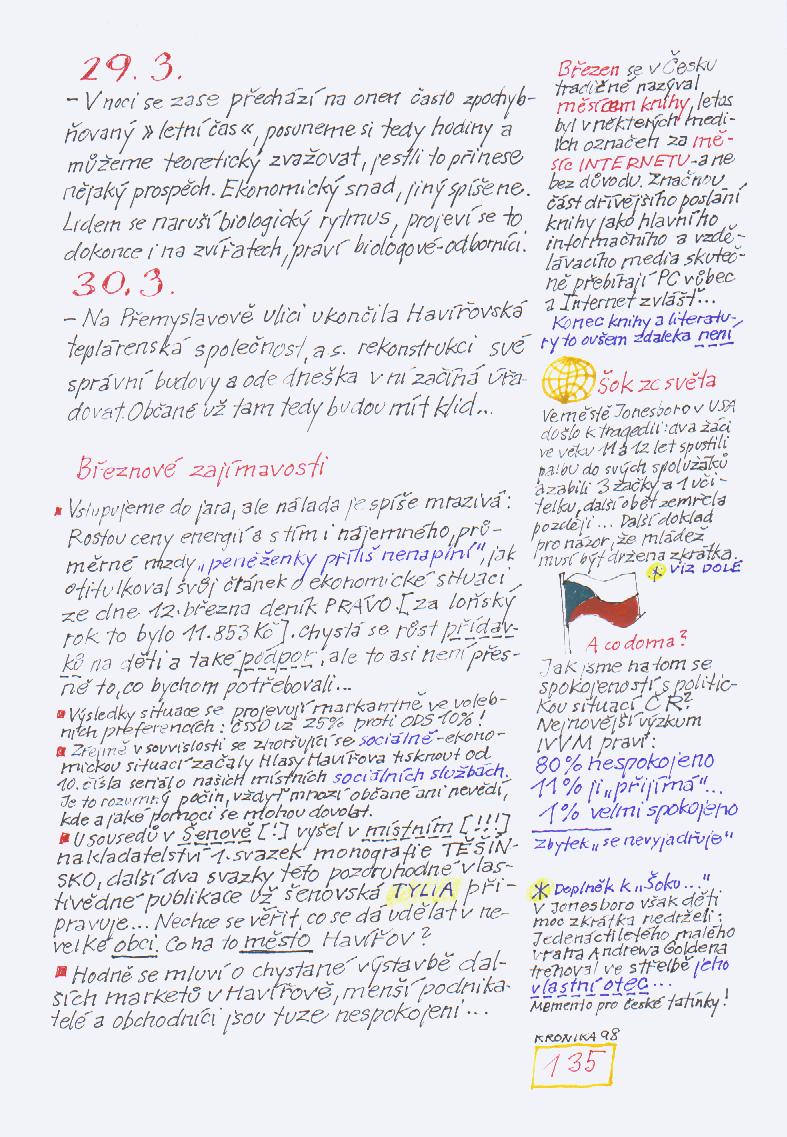 29. 3.
– V noci se zase přechází na onen často zpochyb-
ňovaný » letní čas «, posuneme si tedy hodiny a
můžeme teoretický zvažovat, jestli to přinese
nějaký prospěch. Ekonomický snad, jiný spíše ne.
Lidem se naruší biologický rytmus, projeví se to
dokonce i na zvířatech, praví biologové-odborníci.
30. 3.
– Na Přemyslavově ulici ukončila Havířovská
teplárenská společnost, a.s. rekonstrukci své
správní budovy a ode dneška v ní začíná úřa-
dovat. Občané už tam tedy budou mít klid...
Březnové zajímavosti
Vstupujeme do jara, ale nálada je spíše mrazivá:
Rostou ceny energií a s tím i nájemného, prů-
měrné mzdy „peněženky příliš nenaplní“, jak
otitulkoval svůj článek o ekonomické situaci
ze dne 12. března deník PRÁVO [za loňský
rok to bylo 11.853 Kč]. chystá se růst přídav-
ků na děti a také podpor, ale to asi není přes-
ně to, co bychom potřebovali...
Výsledky situace se projevují markantně ve voleb-
ních preferencích: ČSSD už 25% proti ODS 10%!
Zřejmě v souvislosti se zhoršující se sociálně-ekono-
mickou situací začaly Hlasy Havířova tisknout od
10. čísla seriál o našich místních sociálních službách.
Je to rozumný počin, vždyť mnozí občané ani nevědí,
kde a jaké pomoci se mohou dovolat.
U sousedů v Šenově [!] vyšel v místním [!!!]
nakladatelství 1. svazek monografie TĚŠÍN-
SKO, další dva svazky této pozoruhodné vlas-
tivědné publikace už šenovská TYLIA při-
pravuje... Nechce se věřit, co se dá udělat v ne-
velké obci. Co na to město Havířov?
Hodně se mluví o chystané výstavbě dal-
ších marketů v Havířově, menší podnika-
telé a obchodníci jsou tuze nespokojeni...
Březen se v Česku
tradičně nazýval
měsícem knihy, letos
byl v některých medi-
ích označen za mě-
síc INTERNETU - a ne
bez důvodu. Značnou
část dřívějšího poslání
knihy jako hlavního
informačního a vzdě-
lávacího media skuteč-
ně přebírají PC vůbec
a Internet zvlášť...
Konec knihy a literatu-
ry to ovšem zdaleka není
Šok ze světa
Ve městě Jonesboro v USA
došlo k tragedii: dva žáci
ve věku 11 a 12 let spustili
palbu do svých spolužáků
a zabili 3 žačky a 1 uči-
telku, další oběť zemřela
později... Další doklad
pro názor, že mládež
musí být držena zkrátka.
* VIZ DOLE
A co doma?
Jak jsme na tom se
spokojeností s politic-
kou situací ČR?
Nejnovější výzkum
IVVM praví:
80% nespokojeno
11% ji „přijímá“...
1% velmi spokojeno
zbytek „se nevyjadřuje“
* Doplněk k „Šoku...“.
V Jonesboro však děti
moc zkrátka nedrželi:
Jedenáctiletého malého
vraha Andrewa Goldena
trénoval ve střelbě jeho
vlastní otec...
Memento pro české tatínky!
KRONIKA 98
135